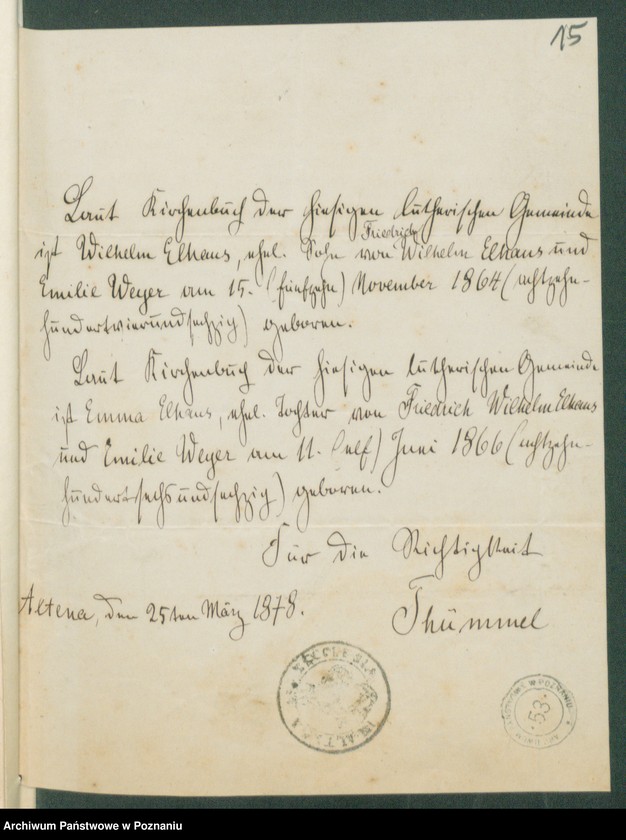 15
Laut Kirchenbuch der hiesigen lutherischen Gemeinde
Friedrich
ist Wilhelm Elhaus, ehel. Sohn von Wilhelm Elhaus und
Emilie Weyer am 15. (fünfzehn) November 1864 (achtzehn-
hundertvierundsechzig) geboren.
Laut Kirchenbuch der hiesigen lutherischen Gemeinde
ist Emma Elhaus, ehel. Tochter von Friedrich Wilhelm Elhaus
und Emilie Weyer am 11. (elf) Juni 1866 (achtzehn-
hundertsechsundsechzig) geboren.
Für die Richtigkeit
Altena, den 25ten März 1878.
Thümmel
ECCLESIA
ARCHIWUM PAŃSTWOWE W POZNANIU
53
Archiwum Państwowe w Poznaniu